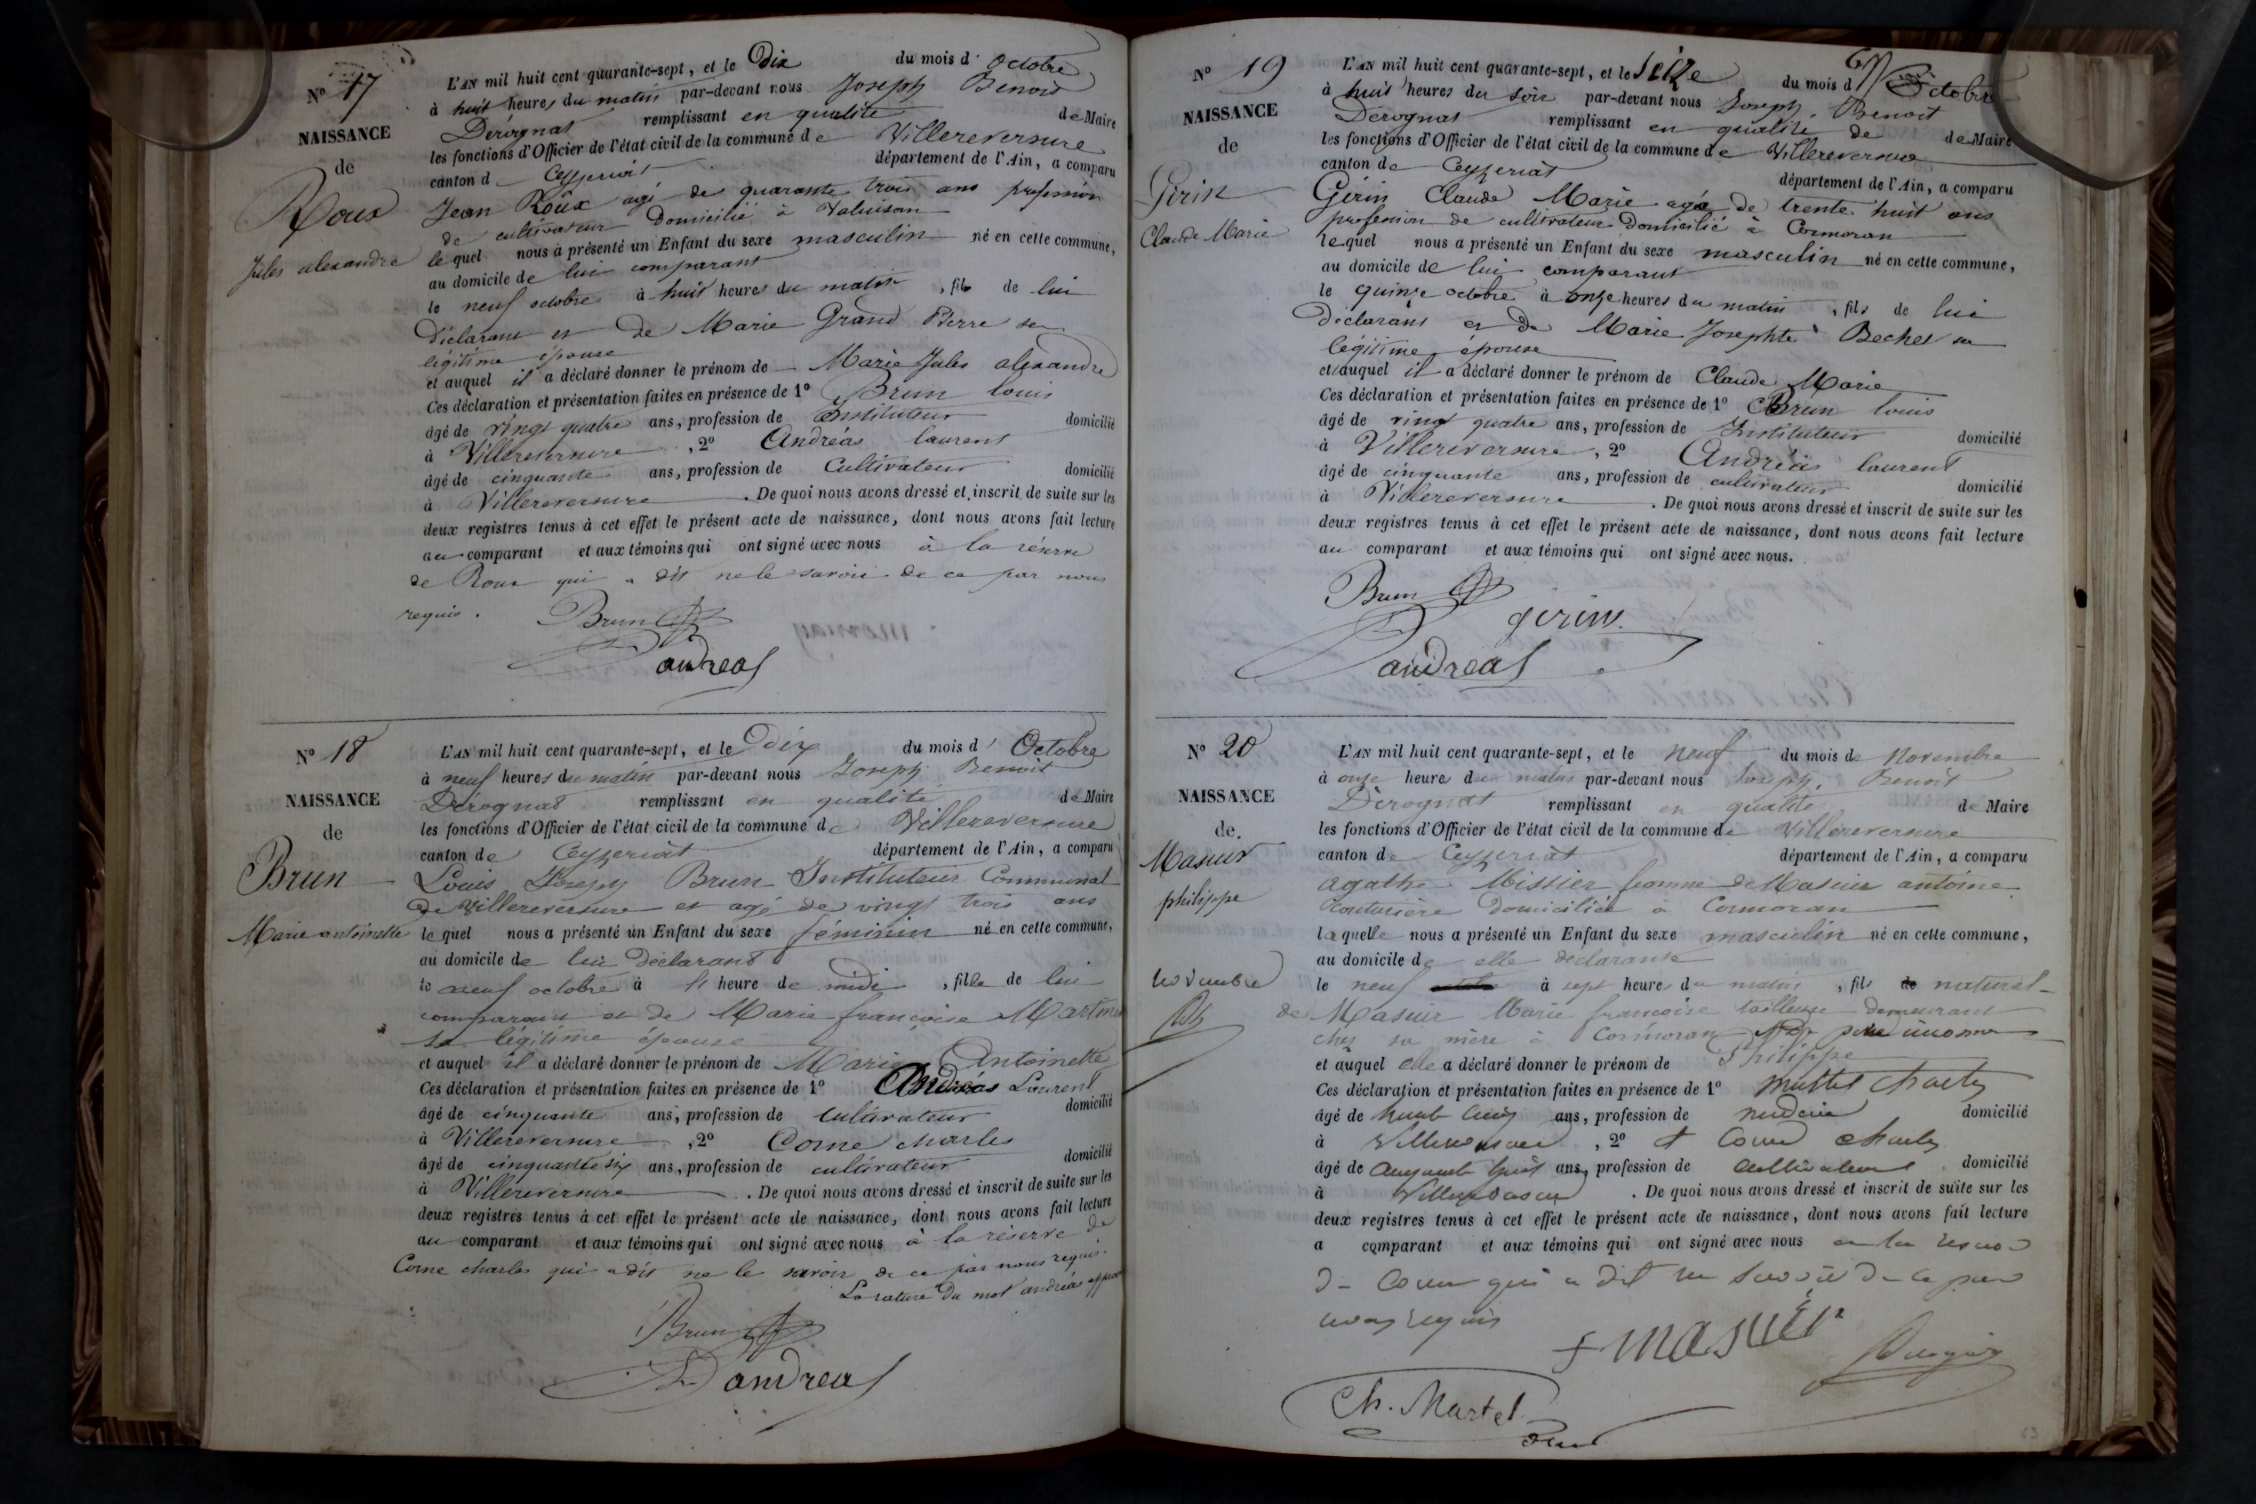 N° 17
NAISSANCE
de
Roux
Jules alexandre
L'AN mil huit cent quarante-sept, et le Dix du mois d' Octobre
à huit heures du matin par-devant nous Joseph Benoit
Dérognat remplissant en qualité de Maire
les fonctions d'Officier de l'état civil de la commune de Villereversure
canton de Ceyzeriat département de l'Ain, a comparu
Jean Roux agé de quarante trois ans profession
de cultivateur Domicilié à
lequel nous a présenté un Enfant du sexe masculin né en cette commune,
au domicile de lui comparant
le neuf octobre à huit heures du matin, fils de lui
Déclarant et de Marie Grand Pierre sa
légitime épouse
et auquel il a déclaré donner le prénom de Marie Jules alexandre
Ces déclaration et présentation faites en présence de 1° Brun louis
âgé de vingt quatre ans, profession de Instituteur domicilié
à Villereversure, 2° Andréas laurent
âgé de cinquante ans, profession de Cultivateur domicilié
à Villereversure. De quoi nous avons dressé et inscrit de suite sur les
deux registres tenus à cet effet le présent acte de naissance, dont nous avons fait lecture
au comparant et aux témoins qui ont signé avec nous à la réserve
de Roux qui a dit ne le savoir de ce par nous
requis.
Brun
andreas
N° 18
NAISSANCE
de
Brun
Marie antoinette
L'AN mil huit cent quarante-sept, et le dix du mois d' Octobre
à neuf heures du matin par-devant nous Joseph Benoit
Dérognat remplissant en qualité de Maire
les fonctions d'Officier de l'état civil de la commune de Villereversure
canton de Ceyzeriat département de l'Ain, a comparu
Louis Joseph Brun Instituteur Communal
de Villereversure et agé de vingt trois ans
lequel nous a présenté un Enfant du sexe féminin né en cette commune,
au domicile de lui Déclarant
le neuf octobre à heure de midi, fille de lui
comparant et de Marie françoise
sa légitime épouse
et auquel il a déclaré donner le prénom de Marie Antoinette
Ces déclaration et présentation faites en présence de 1° Andréas Laurent
âgé de cinquante ans, profession de cultivateur domicilié
à Villereversure, 2° Corne charles
âgé de cinquante six ans, profession de cultivateur domicilié
à Villereversure. De quoi nous avons dressé et inscrit de suite sur les
deux registres tenus à cet effet le présent acte de naissance, dont nous avons fait lecture
au comparant et aux témoins qui ont signé avec nous à la réserve de
Corne charles qui a dit ne le savoir de ce par nous requis.
La rature du mot andréas
Brun
andreas
N° 19
NAISSANCE
de
Girin
Claude Marie
L'AN mil huit cent quarante-sept, et le Seize du mois d' Octobre
à huit heures du soir par-devant nous Joseph Benoit
Dérognat remplissant en qualité de de Maire
les fonctions d'Officier de l'état civil de la commune de Villereversure
canton de Ceyzeriat département de l'Ain, a comparu
Gérin Claude Marie agé de trente huit ans
profession de cultivateur Domicilié à Cormoran
lequel nous a présenté un Enfant du sexe masculin né en cette commune,
au domicile de lui comparant
le quinze octobre à onze heures du matin, fils de lui
Déclarant et de Marie Josephte Bechet sa
légitime épouse
et auquel il a déclaré donner le prénom de Claude Marie
Ces déclaration et présentation faites en présence de 1° Brun louis
âgé de vingt quatre ans, profession de Instituteur domicilié
à Villereversure, 2° Andréas laurent
âgé de cinquante ans, profession de cultivateur domicilié
à Villereversure. De quoi nous avons dressé et inscrit de suite sur les
deux registres tenus à cet effet le présent acte de naissance, dont nous avons fait lecture
au comparant et aux témoins qui ont signé avec nous.
Brun
girin.
andreas
N° 20
NAISSANCE
de
Masuir
philippe
novembre
L'AN mil huit cent quarante-sept, et le neuf du mois de Novembre
à onze heures du matin par-devant nous Joseph Benoit
Dérognat remplissant en qualité de Maire
les fonctions d'Officier de l'état civil de la commune de Villereversure
canton de Ceyzeriat département de l'Ain, a comparu
agathe Missier femme de Masuir antoine
Couturière Domiciliée à Cormoran
laquelle nous a présenté un Enfant du sexe masculin né en cette commune,
au domicile de elle déclarante
le neuf à sept heures du matin, fils de naturel
de Masuir Marie francoise tailleuse demeurant
chez sa mère à Cormoran père inconnu
et auquel elle a déclaré donner le prénom de Philippe
Ces déclaration et présentation faites en présence de 1° Martel Charles
âgé de trente cinq ans, profession de médecin domicilié
à Villereversure, 2° Corne charles
âgé de cinquante huit ans, profession de cultivateur domicilié
à Villereversure. De quoi nous avons dressé et inscrit de suite sur les
deux registres tenus à cet effet le présent acte de naissance, dont nous avons fait lecture
a comparant et aux témoins qui ont signé avec nous a la reserve
de Corne qui a dit ne savoir de ce par
nous requis
f masuir
Ch. Martel
63